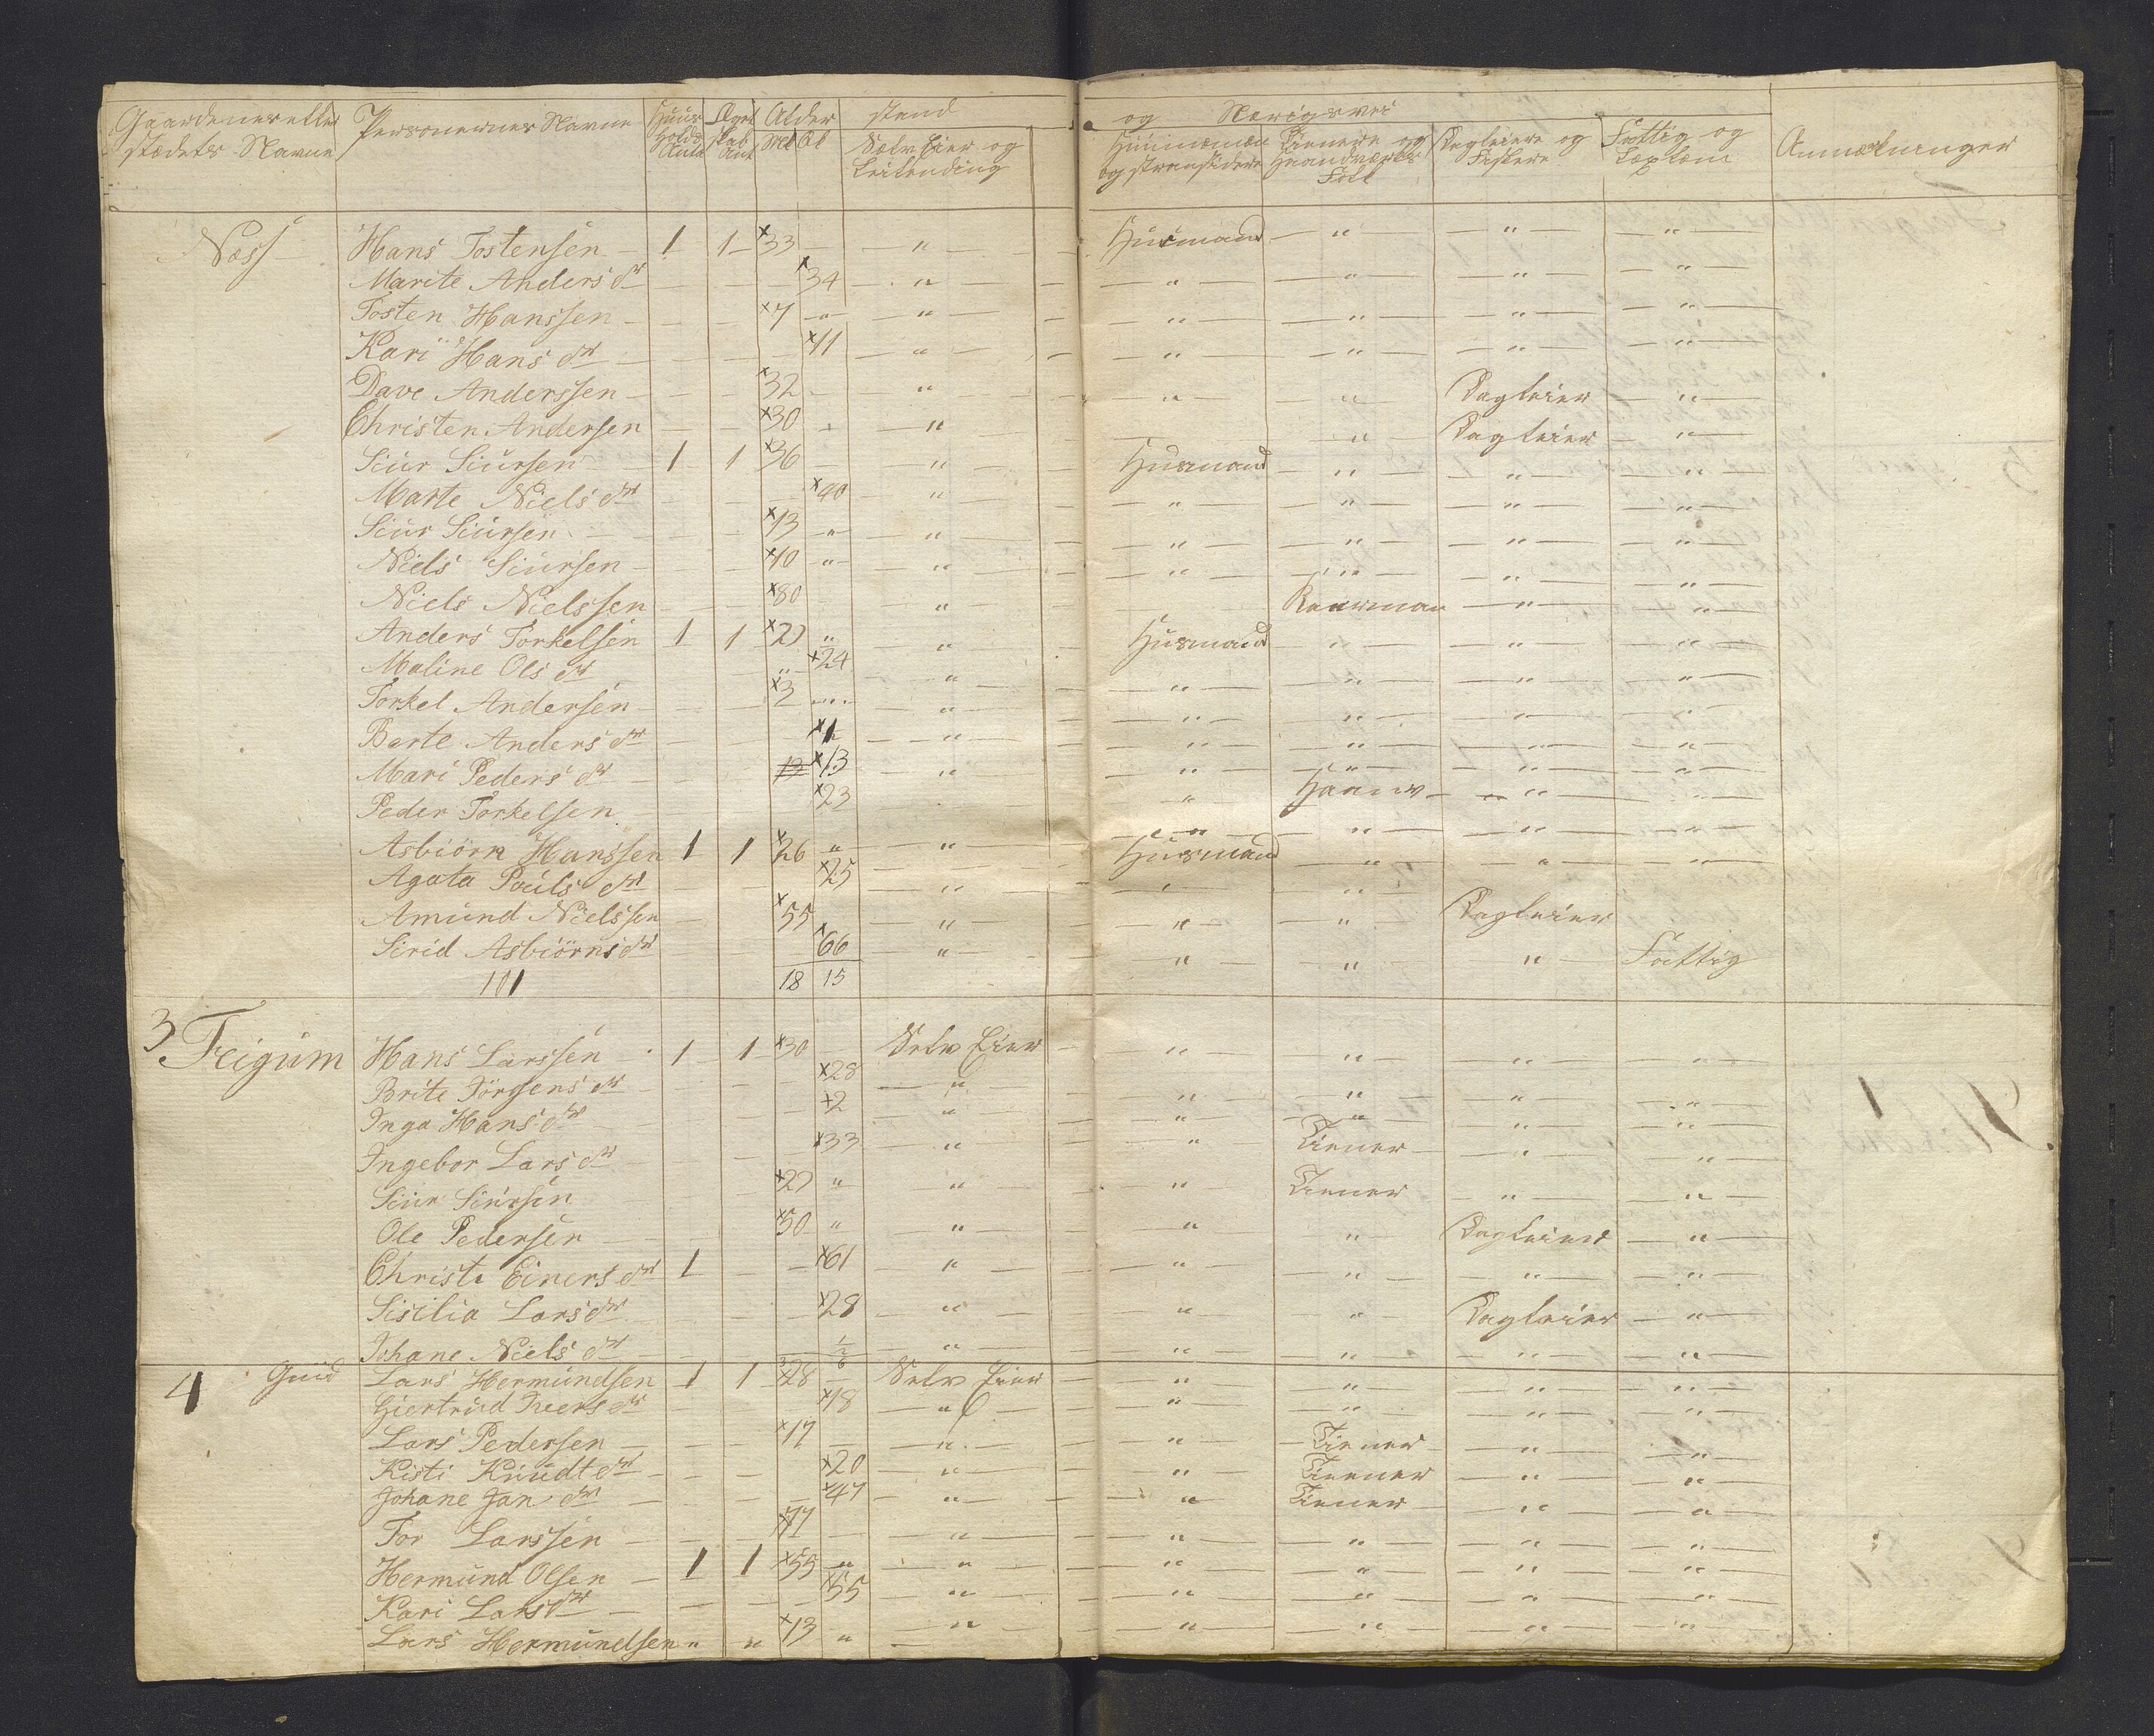 Gaardenes eller stædets Navne | Personernes Navne | Huus Holds Antal | Ægteskab Ant | Alder | stand | og Næringsvei | Anmærkninger
Mk | Qk | Selv Eier og Leilending | Huusmænden og stransidere | Tienere og Haandværks Folk | Dagleiere og Fiskere | Fattig og Læglem
Næss Hans Tostensen 1 1 33 " Husmand " " "
Marite Anders dr 34 " " " " "
Tosten Hanssen 7 " " " " " "
Kari Hans dr 11 " " " " "
Dave Anderssen 32 " " " Dagleier "
Christen Andersen 30 " " Dagleier "
Siur Siursen 1 1 36 " Husmand " " "
Marte Niels dr 40 " " " " "
Siur Siursen 13 " " " " " "
Niels Siursen 10 " " " " " "
Niels Nielssen 80 " " "
Anders Torkelsen 1 1 27 " " Husmand " " "
Maline Ols dr " 24 " " " " "
Torkel Andersen 3 " " " " " "
Barte Anders dr 1 " " " " "
Mari Peders dr 13 13 " " " " "
Peder Torkelsen 23 " " "
Asbiörn Hanssen 1 1 26 " " Husmand " " "
Agata Pouls dr 25 " " "
Amund Nielssen 55 " " " Dagleier
Sirid Asbiörns dr 66 " " " " Fattig
101 18 15
3 Feigum Hans Larssen 1 1 30 Selv Eier " " " "
Brite Jörgens dr 28 " " " " "
Inga Hans dr 2 " " " " "
Ingebor Lars dr 33 " " Tiener " "
Siur Siursen 27 " " " Tiener " "
Ole Pedersen 50 " " " " Dagleier "
Christi Einers dr 1 61 " " " " "
Sisilia Lars dr 28 " " " Dagleier "
Johane Niels dr 1/2 " " " " "
3 6
4 Guid Lars Hermundsen 1 1 28 Selv Eier " " " "
Giertrud Ivers dr 18 " " " " "
Lars Pedersen 17 " " Tiener " "
Kisti Knudt dr 20 " " Tiener " "
Johane Jan dr 47 " " Tiener " "
Tor Larssen 77 " " " " "
Hermund Olsen 1 1 55 " " " " " "
Kari Lars dr 55 " " " " "
Lars Hermundsen " " 13 " " " " " "